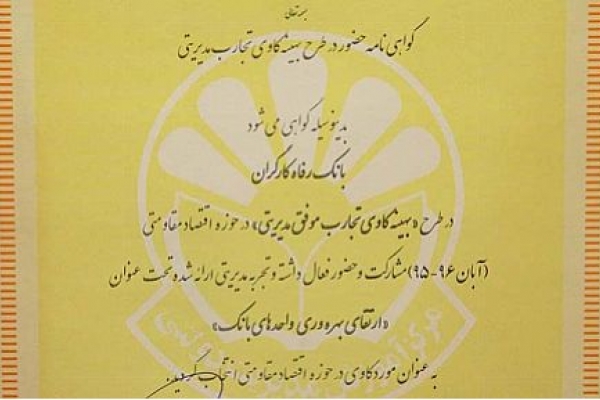 بسمه تعالی
گواهی نامه حضور در طرح بهینه کاوی تجارب مدیریتی
بدینوسیله گواهی می شود
بانک رفاه کارگران
در طرح «بهینه کاوی تجارب موفق مدیریتی» در حوزه اقتصاد مقاومتی
(آبان ۹۶-۹۵) مشارکت و حضور فعال داشته و تجربه مدیریتی ارائه شده تحت عنوان
«ارتقای بهره وری واحدهای بانک»
به عنوان مورد کاوی در حوزه اقتصاد مقاومتی انتخاب گردید